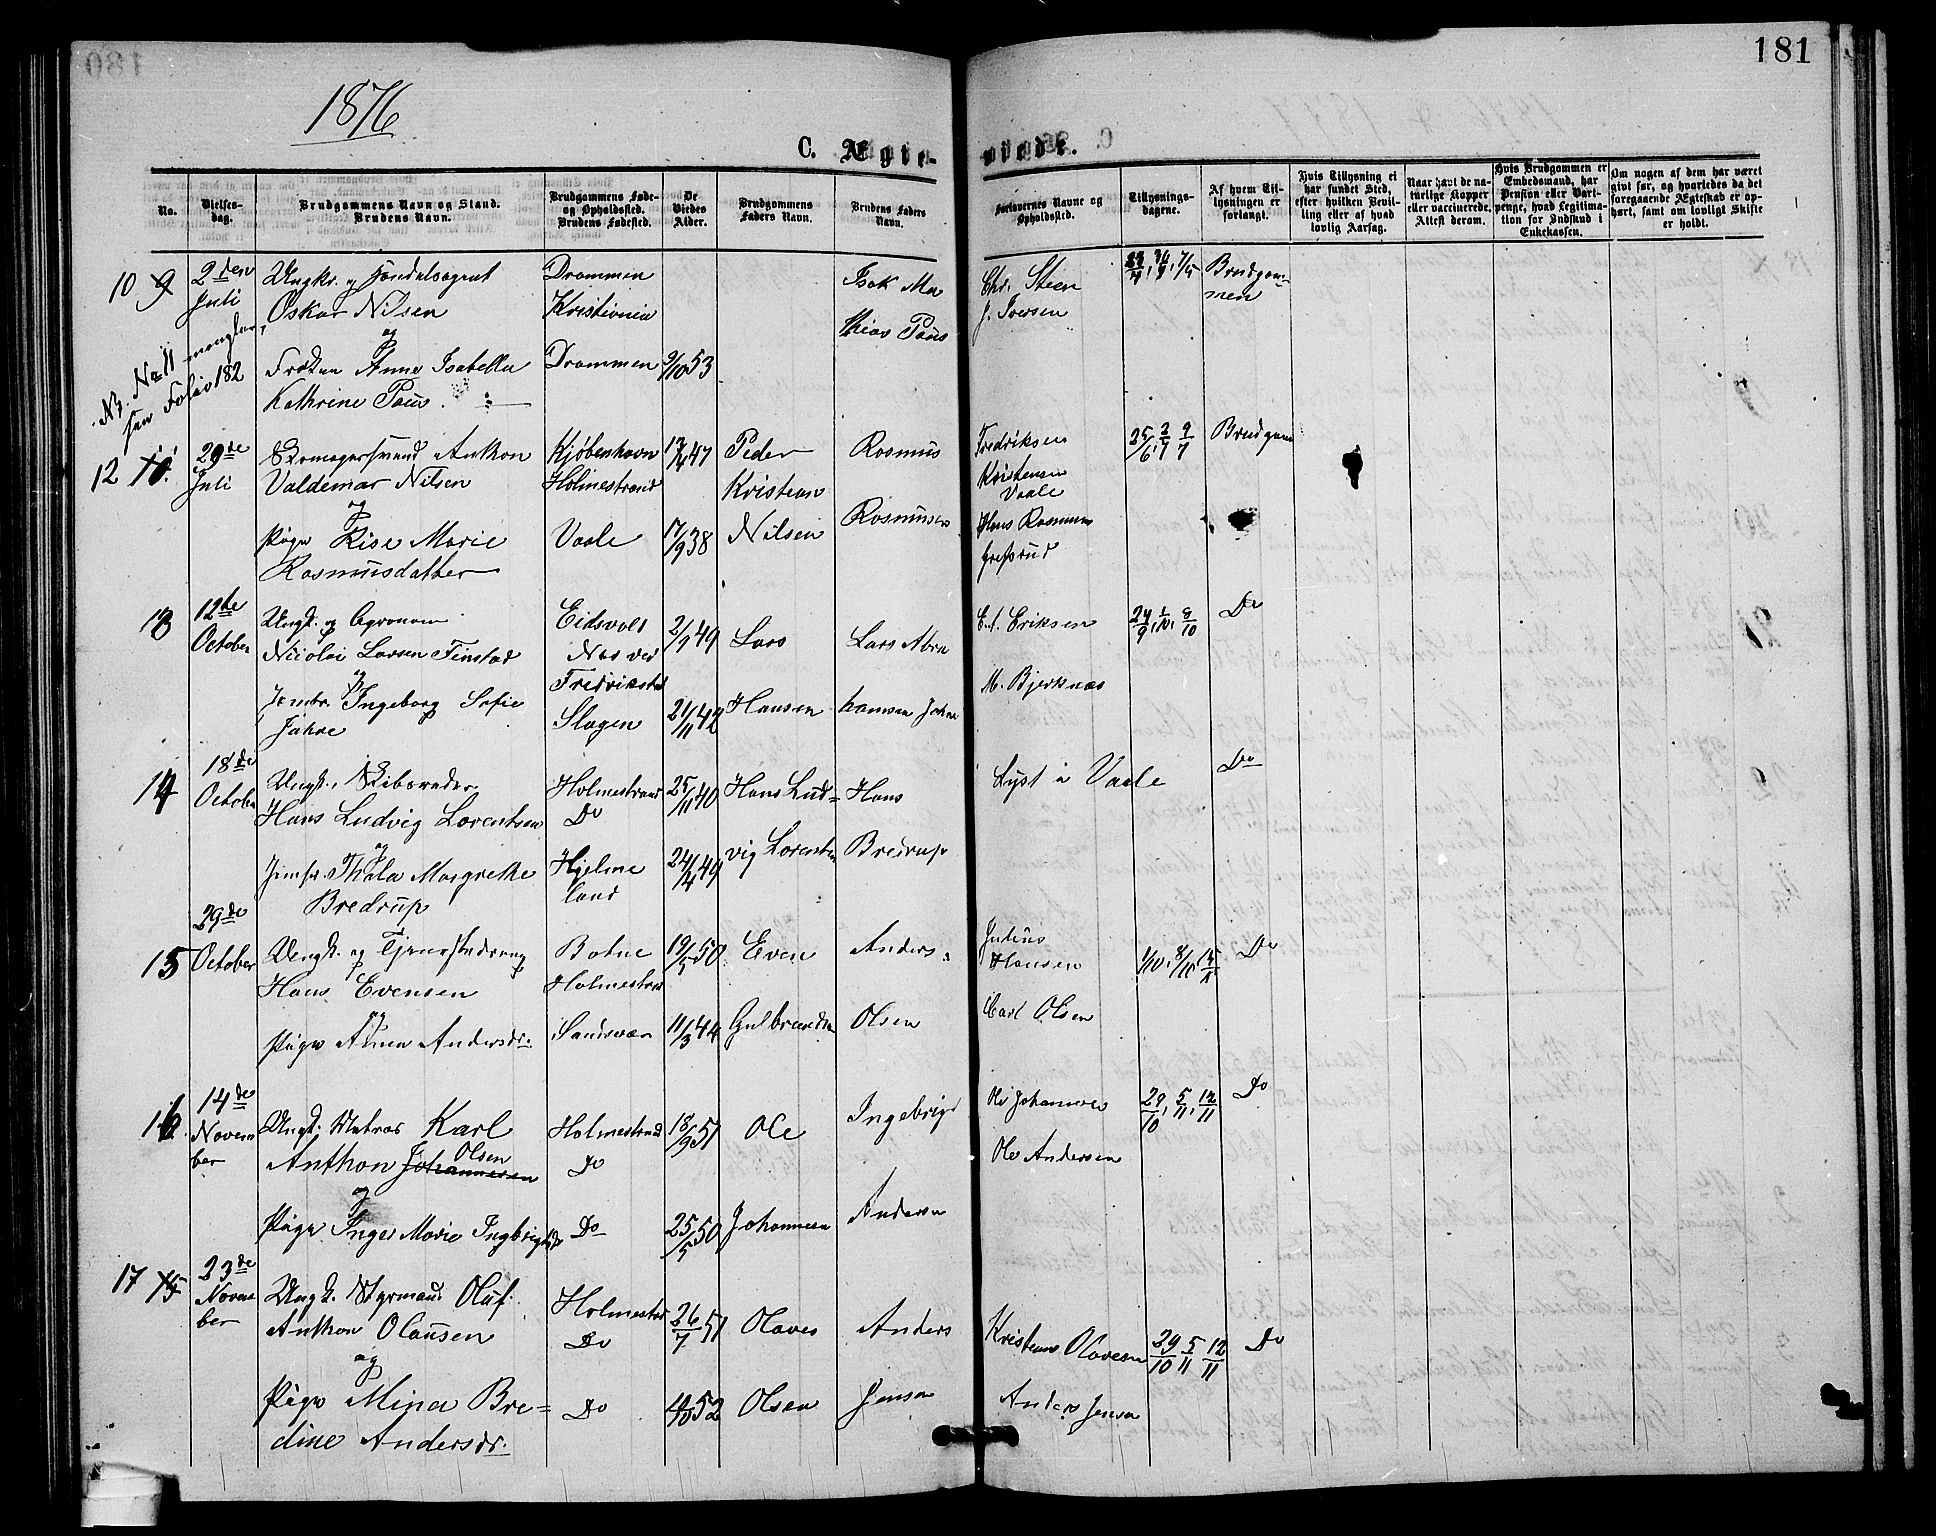 180
181
1876
C. Ægte-
viede.
No.
Vielses-
dag.
Brudgommens Navn og Stand.
Brudens Navn.
Brudgommens Føde-
og Opholdssted.
Brudens Fødested.
De
Viedes
Alder.
Brudgommens
Faders Navn.
Brudens Faders
Navn.
Forlovernes Navne og
Opholdssted.
Tillysnings-
dagene.
Af hvem Til-
lysningen er
forlangt.
Hvis Tillysning ei
har fundet Sted,
efter hvilken Bevil-
ling eller af hvad
lovlig Aarsag.
Naar havt de na-
turlige Kopper
eller vaccinerede.
Attest derom.
Hvis Brudgommen er
Embedsmand, har
Pension eller Vart-
penge, hvad Legitima-
tion for Indskud i
Enkekassen.
Om nogen af dem har været
gift før, og hvorledes da det
foregaaende Ægteskab er op-
hørt, samt om lovligt Skifte
er holdt.
10 9 2den Juli
Ungkr. og Handelsagent
Oskar Nilsen
og
Frøken Anne Isabella
Kathrine Paus
Drammen
Kristiania
Drammen
9/10 53
Isak Ma
thias Paus
Chr. Steen
J. Iversen
7/5
Brudgom-
men
Nr. No 11 mangler,
sen Folio 182
12 10. 29de Juli
Skomagersvend Anthon
Valdemar Nilsen
og
Pige Lise Marie
Rasmusdatter
Kjøbenhavn
Holmestrand
Vaale
47
17/9 38
Peder
Kristian
Nilsen
Rasmus
Rasmusen
Fredriksen
Kristensen
Vaale
Hans Rasmusen
25/6, 2/7 9/7
Brudgom
13 12te October
Ungk. og Agronom
Nicolai Larsen Finstad
og
Jomfr. Ingeborg Sofie
Jahre
Eidsvold
Næs ved
Fredrikstad
Slagen
2/9 49
21/11 42
Lars
Hansen
Lars Abra
hamsen Jahre
E. A. Eriksen
M. Bjerknæs
24/9, 1/10, 8/10
Do
14 18de October
Ungk. Skibsreder
Hans Ludvig Lorentsen
og
Jomfr. Thala Margrethe
Bredrup
Holmestrand
Do
Hjelme
land
25/11 40
24/4 49
Hans Lud-
vig Lorentsen
Hans
Bredrup
Lyst i Vaale
Do
15 29de October
Ungk. og Tjenestedreng
Hans Evensen
og
Pige Anna Andersdr.
Botne
Holmestrand
Sandsvær
19/5 50
11/3 44
Even
Gulbrandsen
Anders
Olsen
Julius
Hansen
Carl Olsen
1/10, 8/10, 15/10
Do
16 14de November
Ungk. Matros Karl
Anthon Johannesen Olsen
og
Pige Inger Marie Ingbrigtsdr
Holmestrand
Do
Do
18/9 51
25/5 50
Ole
Johannesen
Ingebrigt
Andersen
Ole Johannes
Ole Andersen
29/10, 5/11, 12/11
Do
17 15 23de November
Ungk. Styrmand Oluf
Anthon Olausen
og
Pige Mina Bre-
dine Andersdr.
Holmestrand
Do
Do
26/7 51
4/10 52
Olaves
Olsen
Anders
Jensen
Kristians Olavesen
Anders Jensen
29/10 5/11 12/11
Do